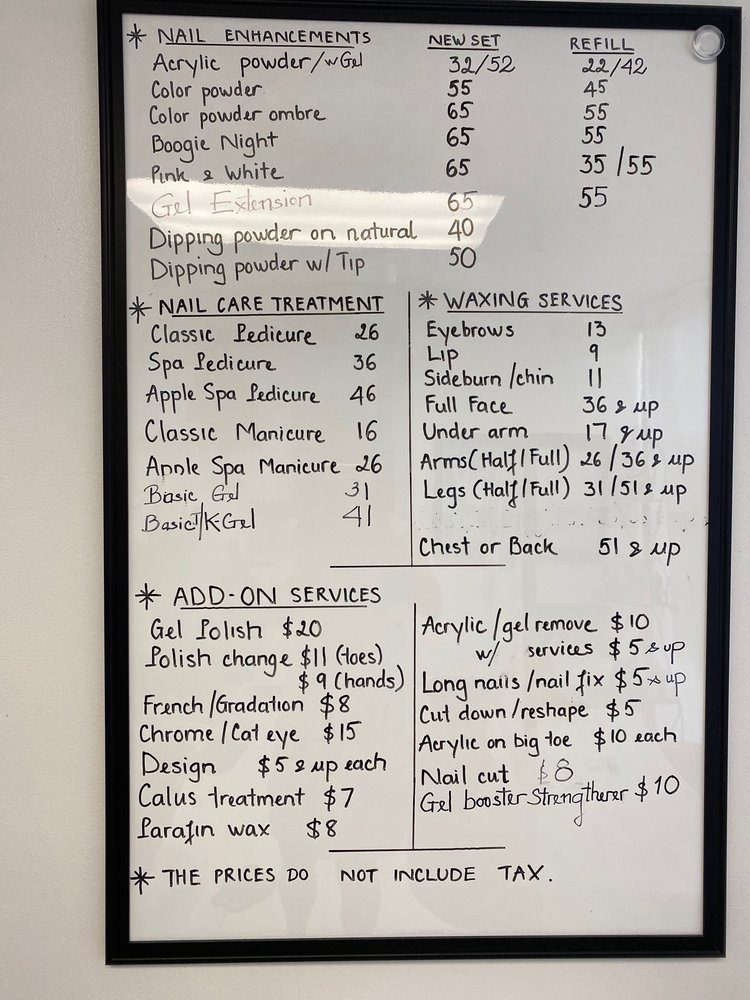 * NAIL ENHANCEMENTS NEW SET REFILL
Acrylic powder/w Gel 32/52 22/42
Color powder 55 45
Color powder ombre 65 55
Boogie Night 65 55
Pink & White 65 35/55
Gel Extension 65 55
Dipping powder on natural 40
Dipping powder w/ Tip 50
* NAIL CARE TREATMENT
Classic Pedicure 26
Spa Pedicure 36
Apple Spa Pedicure 46
Classic Manicure 16
Apple Spa Manicure 26
Basic Gel 31
Basic T/K-Gel 41
* WAXING SERVICES
Eyebrows 13
Lip 9
Sideburn/chin 11
Full Face 36 & up
Under arm 17 & up
Arms (Half/Full) 26/36 & up
Legs (Half/Full) 31/51 & up
Chest or Back 51 & up
* ADD-ON SERVICES
Gel Polish $20
Polish change $11 (toes)
$9 (hands)
French/Gradation $8
Chrome/Cat eye $15
Design $5 & up each
Calus treatment $7
Parafin wax $8
Acrylic/gel remove $10
w/ services $5 & up
Long nails/nail fix $5 & up
Cut down/reshape $5
Acrylic on big toe $10 each
Nail cut $8
Gel booster Strengtherer $10
* THE PRICES DO NOT INCLUDE TAX.